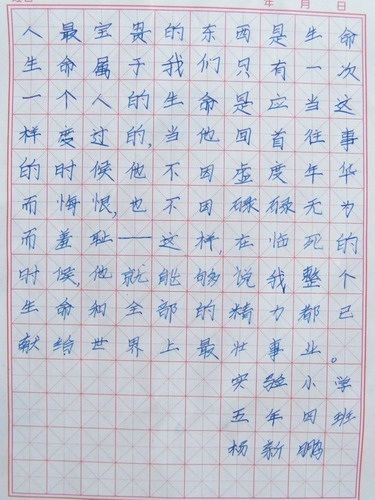 年 月 日
人最宝贵的东西是生命
生命属于我们只有一次
一个人的生命是应当这
样度过的,当他回首往事
的时候他不因虚度年华
而悔恨,也不因碌碌无为
而羞耻——这样,在临死的
时候,他就能够说我整个
生命和全部的精力都已
献给世界上最壮事业。
实验小学
五年四班
杨新鹏